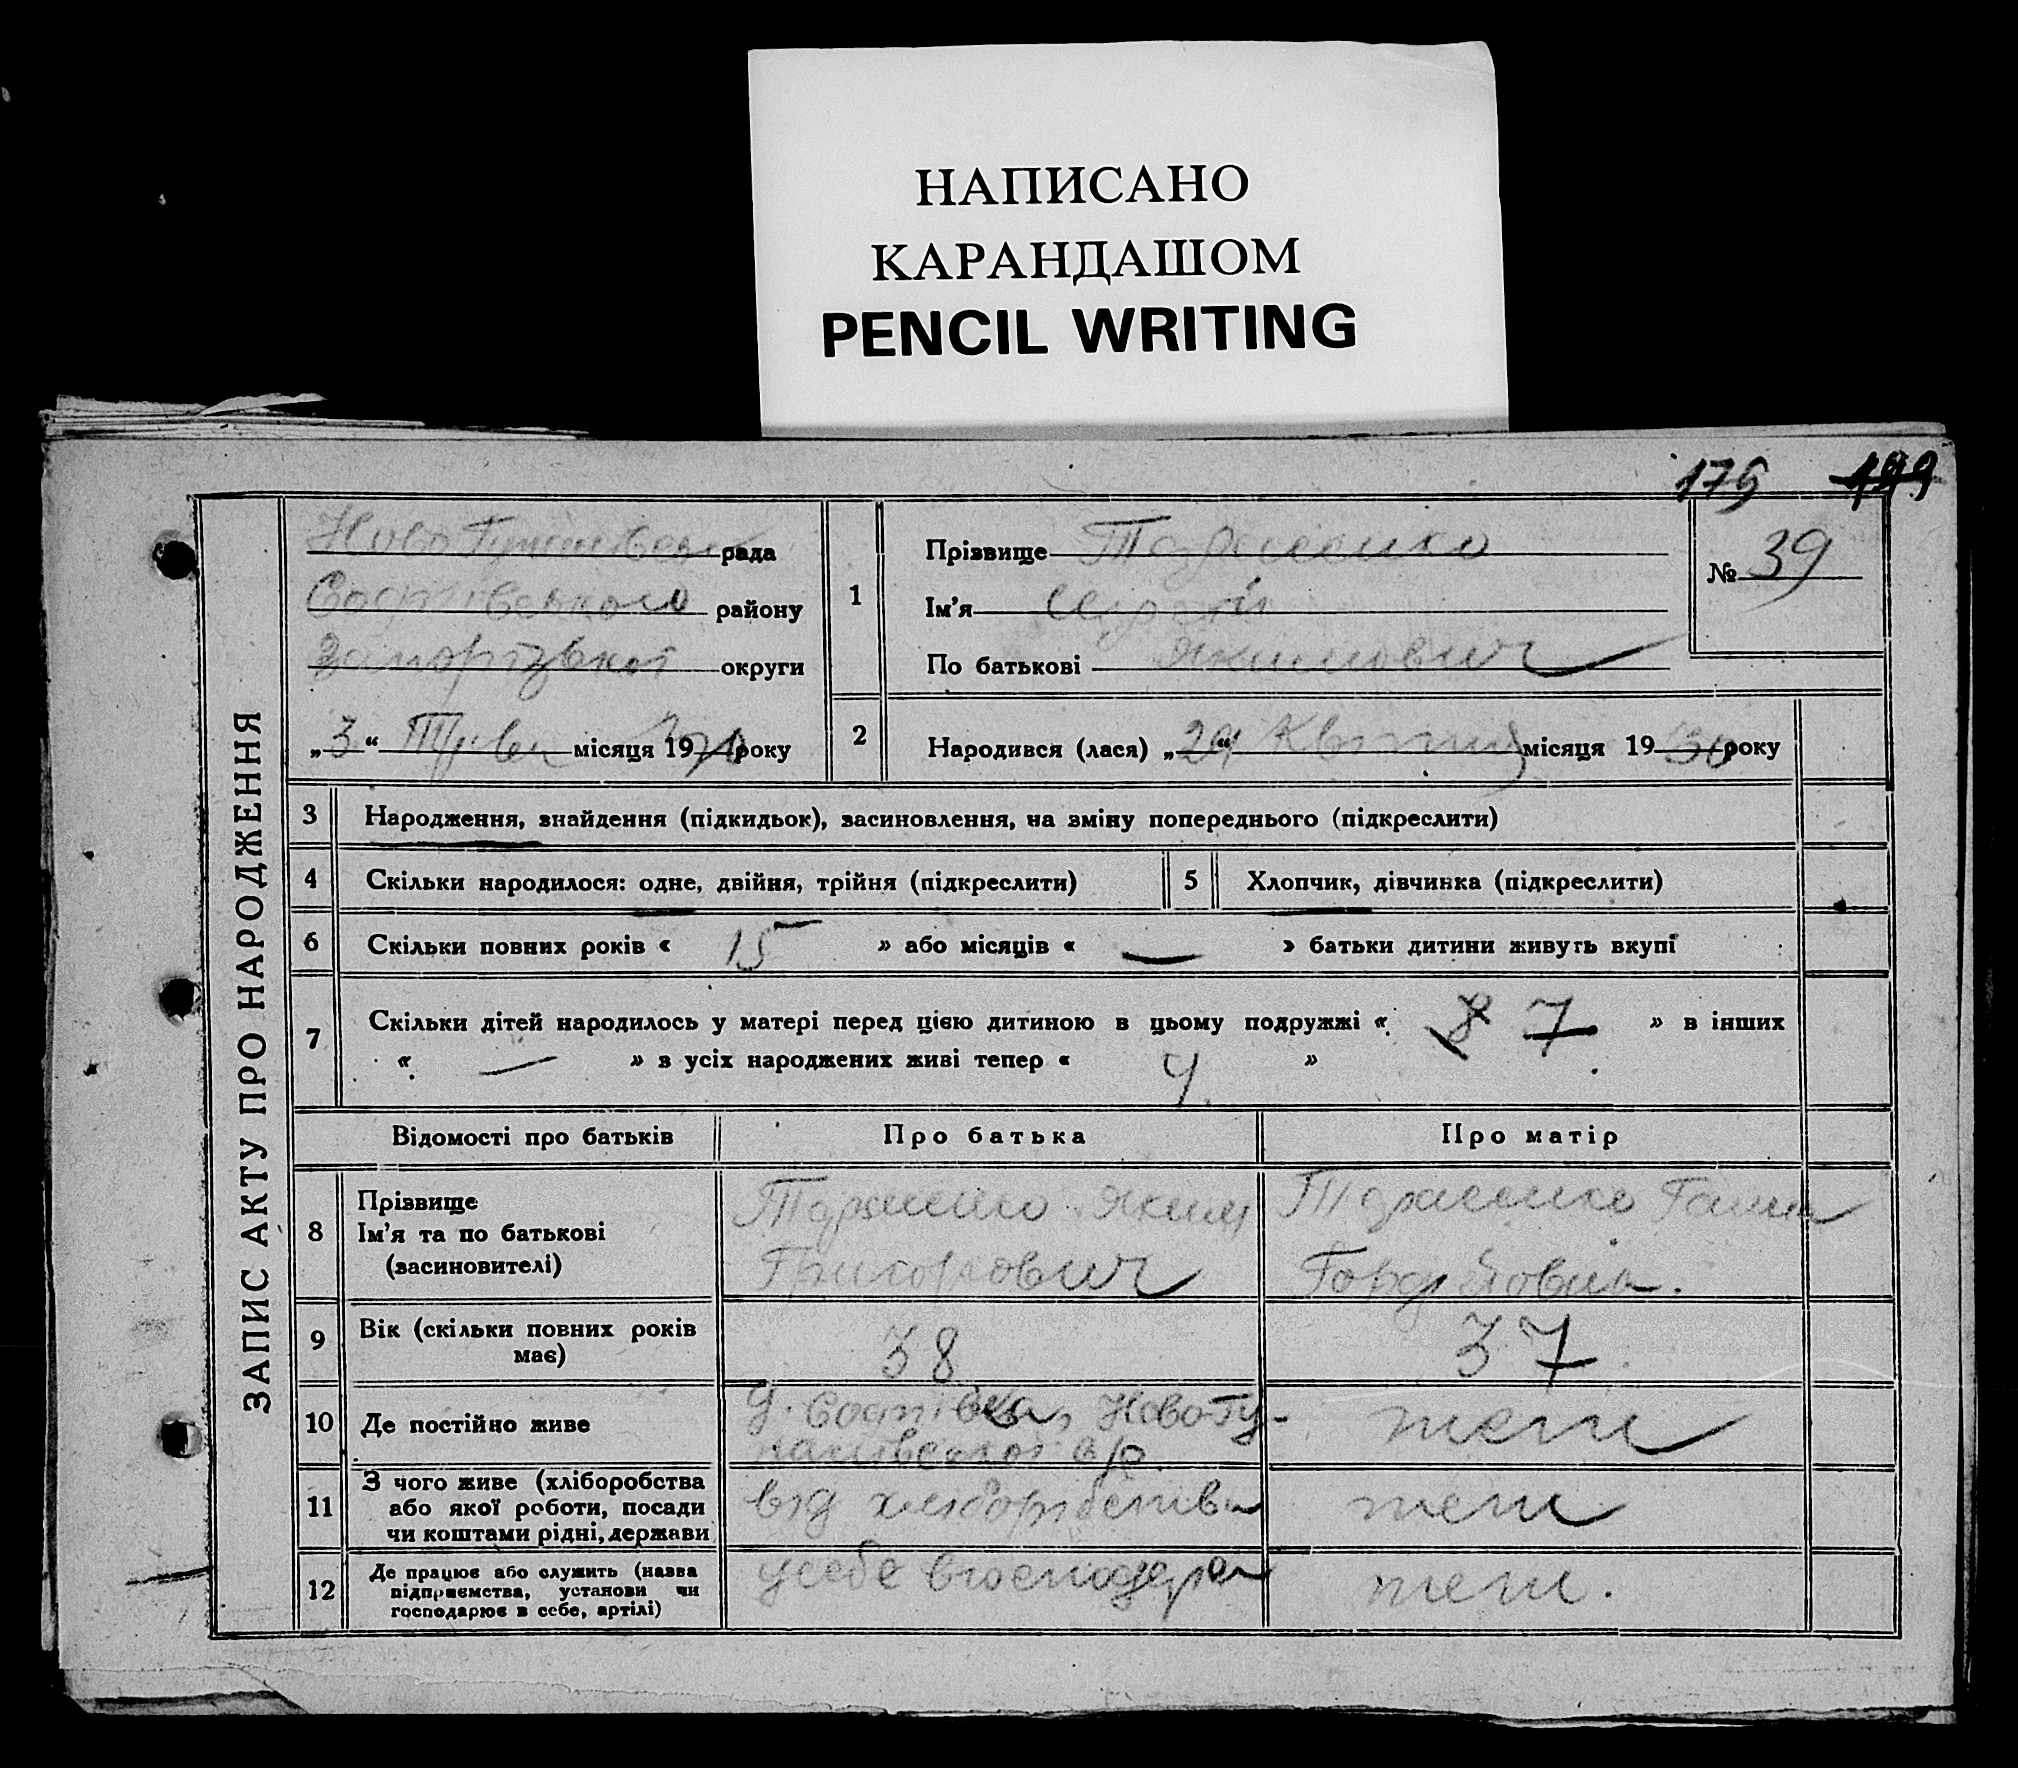 НАПИСАНО
КАРАНДАШОМ
PENCIL WRITING
175 199
ЗАПИС АКТУ ПРО НАРОДЖЕННЯ
рада
Софіївського району
Запорізької округи
„3“ Трав місяця 1930 року
1
Прізвище
Ім'я Сергій
По батькові Якимович
№ 39
2
Народився (лася) „29“ Квітня місяця 1930 року
3 Народження, знайдення (підкидьок), засиновлення, на зміну попереднього (підкреслити)
4 Скільки народилося: одне, двійня, трійня (підкреслити) 5 Хлопчик, дівчинка (підкреслити)
6 Скільки повних років « 15 » або місяців « — » батьки дитини живуть вкупі
7 Скільки дітей народилось у матері перед цією дитиною в цьому подружжі « 8 7 » в інших
« — » в усіх народжених живі тепер « 4 »
Відомості про батьків Про батька Про матір
8 Прізвище
Ім'я та по батькові
(засиновителі)
Яким
Григорович
Ганна
Гордіївна.
9 Вік (скільки повних років
має)
38 37
10 Де постійно живе
с. Софіївка, Ново-Гу-
теж
11 З чого живе (хліборобства
або якої роботи, посади
чи коштами рідні, держави
від хліборобства
теж
12 Де працює або служить (назва
підприємства, установи чи
господарює в себе, артілі)
у себе в господар
теж.